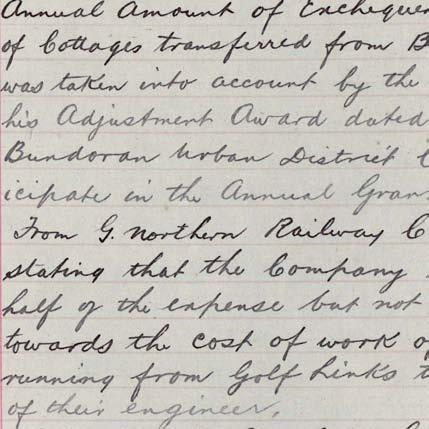 Annual Amount of Exchequer
of Cottages transferred from B
was taken into account by the
his Adjustment Award dated
Bundoran Urban District C
icipate in the Annual Gran
From G. Northern Railway C
stating that the Company
half of the expense but not
towards the cost of work o
running from Golf Links t
of their engineer.